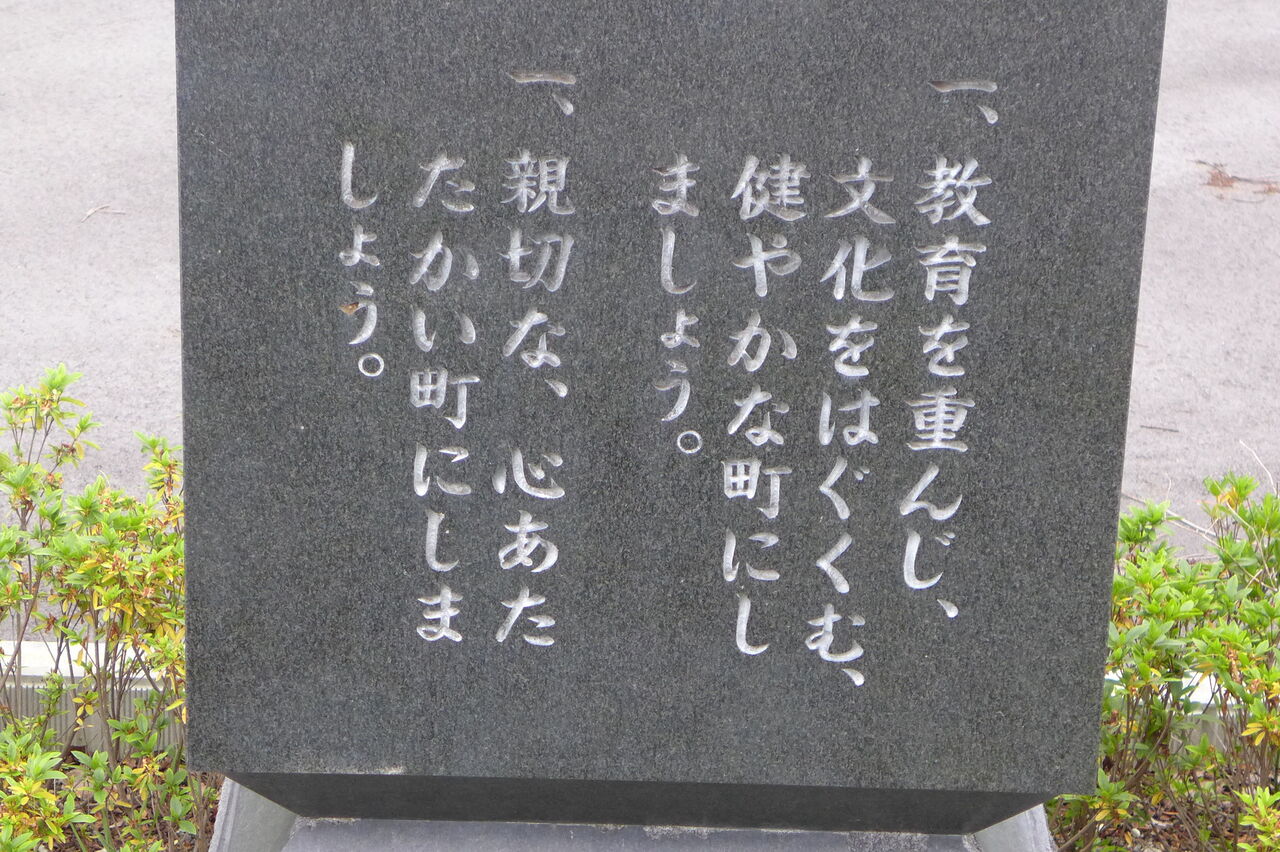 一、教育を重んじ、
文化をはぐくむ、
健やかな町にし
ましょう。
一、親切な、心あた
たかい町にしま
しょう。